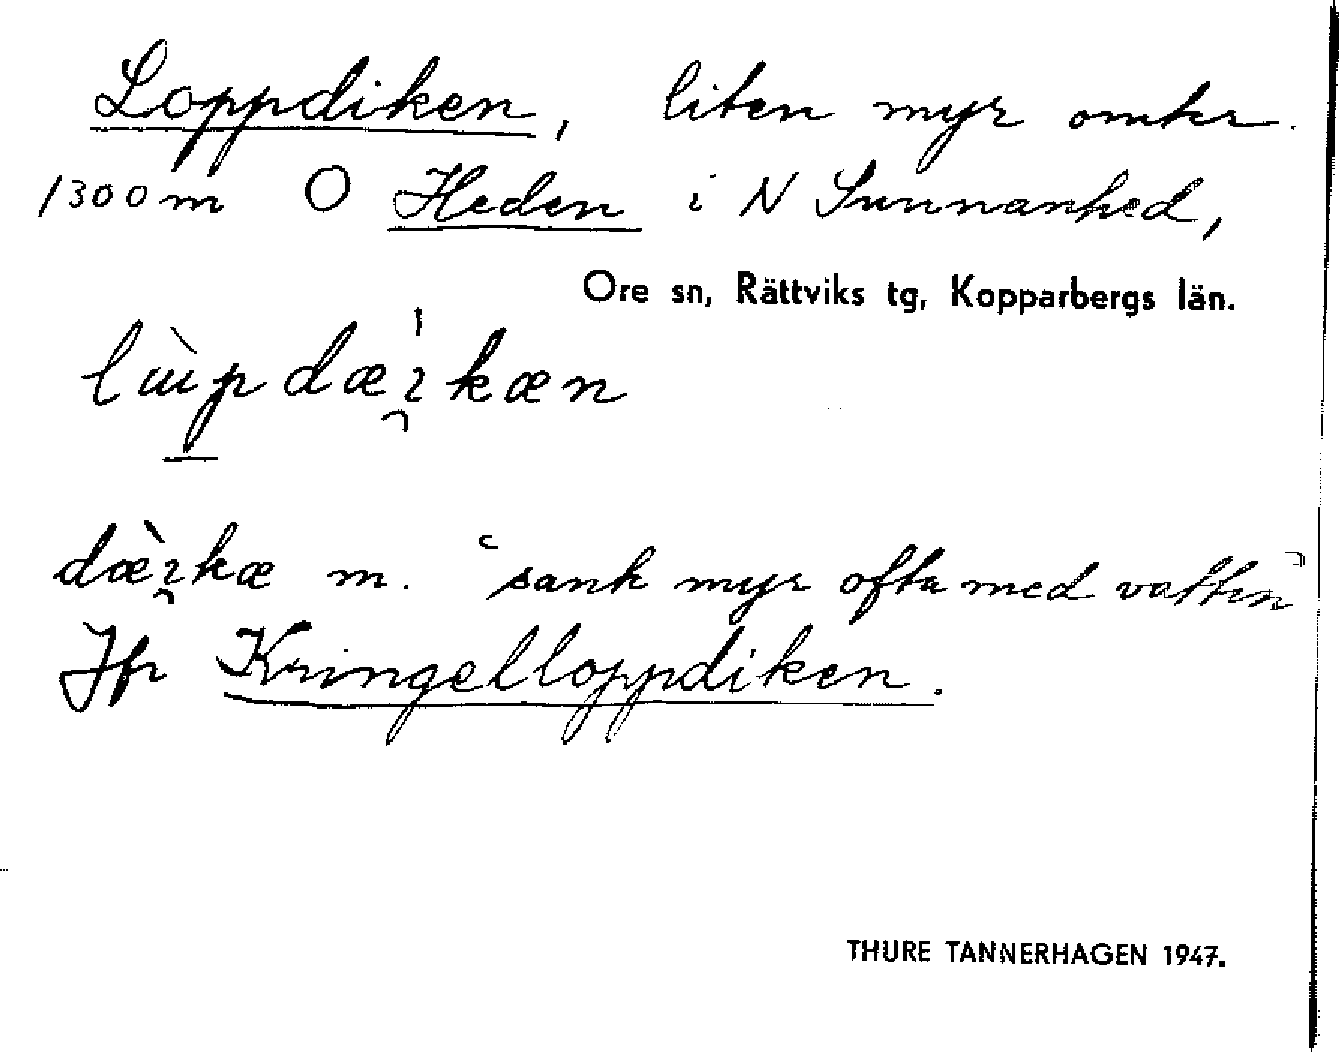 Loppdiken, liten myr omkr.
1300 m O Heden i N Sunnanhed,
Ore sn, Rättviks tg, Kopparbergs län.
m. "sank myr ofta med vatten"
Jfr Kringelloppdiken.
THURE TANNERHAGEN 1947.